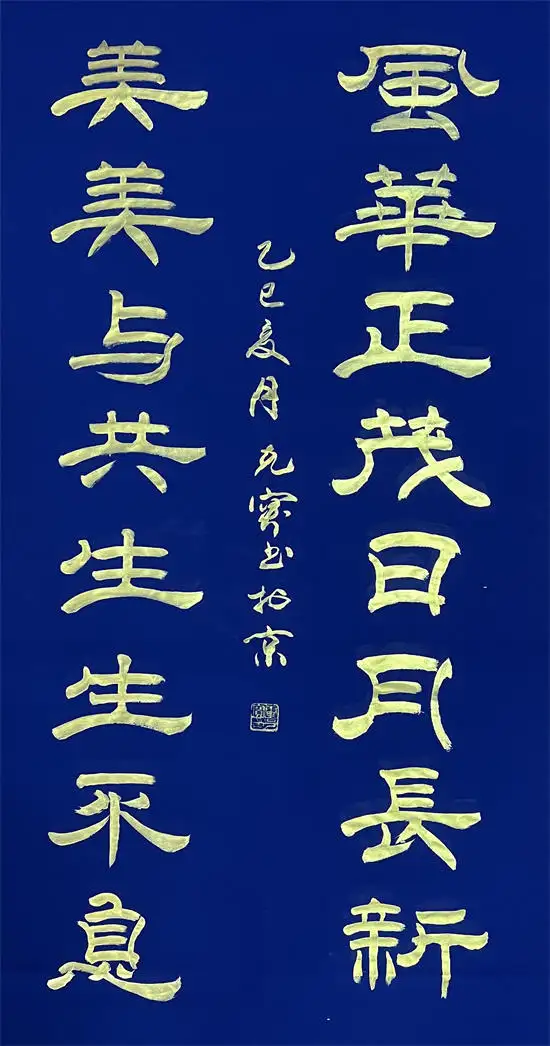 風華正茂日月長新
乙巳夏月克书於京
美美与共生生不息